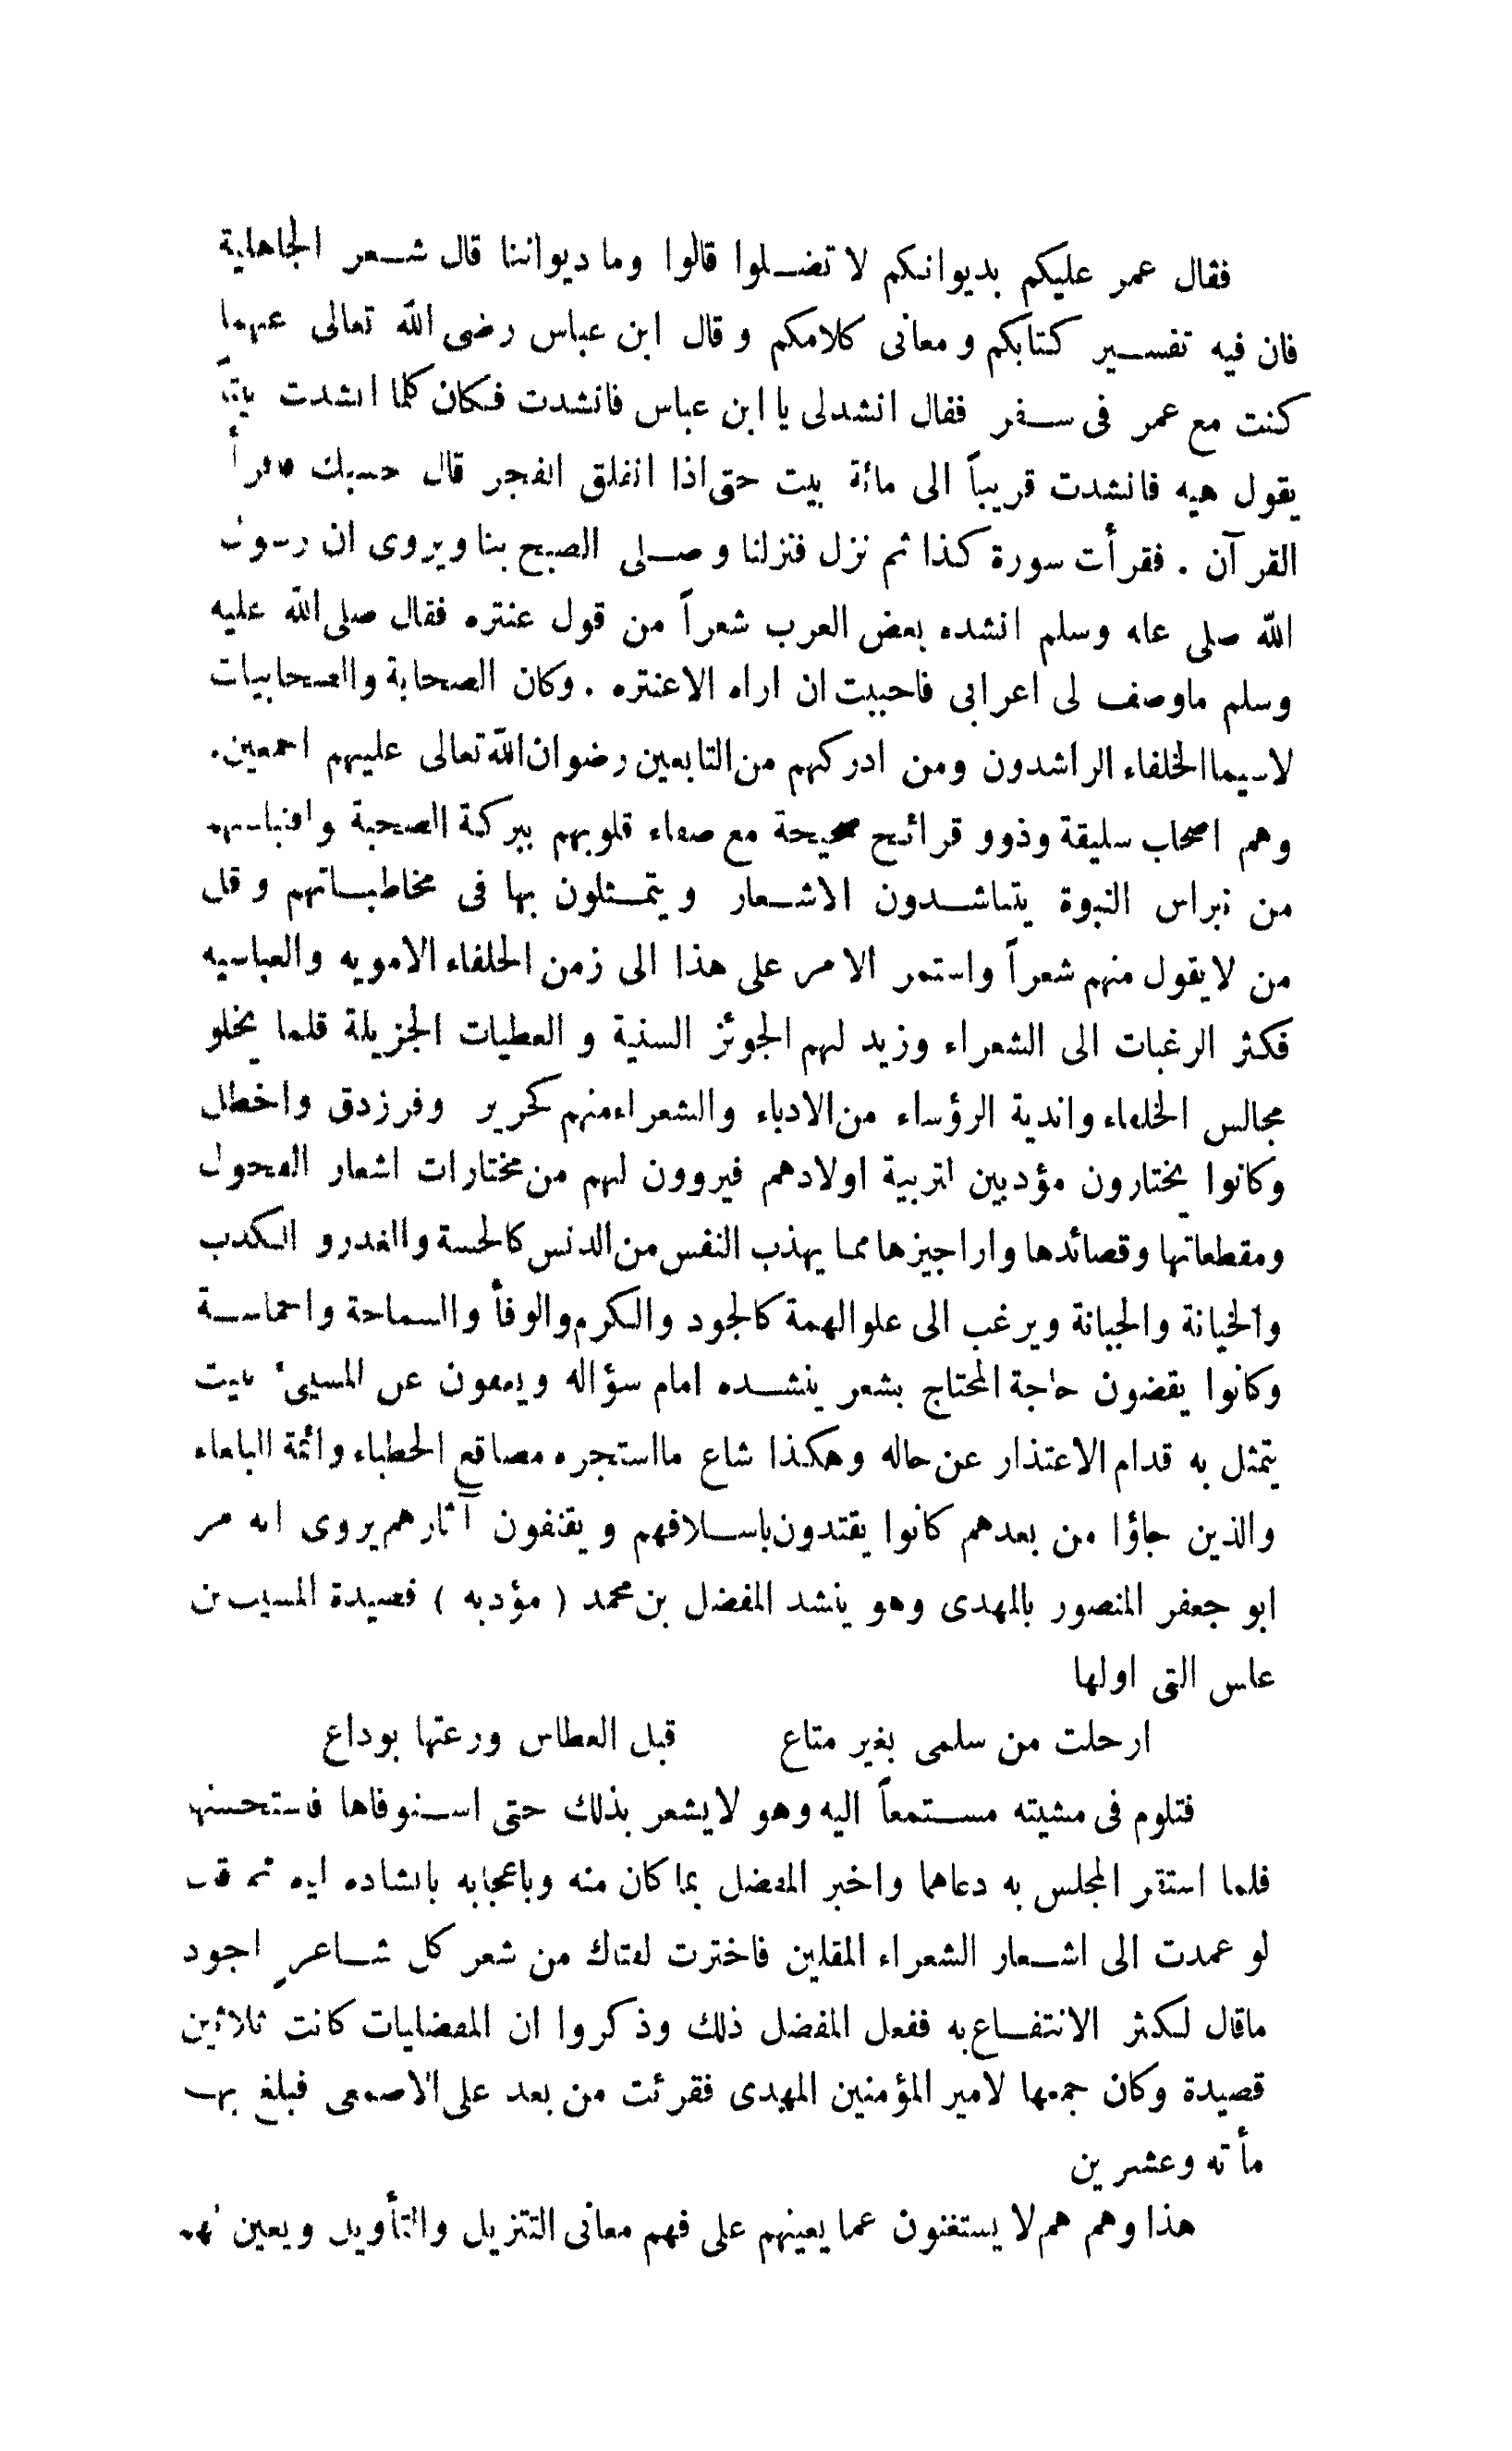 فقال عمر عليكم بديوانكم لا تضلوا قالوا وما ديواننا قال شعر الجاهلية
فان فيه تفسير كتابكم ومعانى كلامكم وقال ابن عباس رضى الله تعالى عنهما
كنت مع عمر فى سفر فقال انشدلى يا ابن عباس فانشدت فكان كلما انشدت بيتاً
يقول هيه فانشدت قريباً الى مائة بيت حتى اذا انفلق الفجر قال حسبك فاقرأ
القرآن . فقرأت سورة كذا ثم نزل فنزلنا وصلى الصبح بنا ويروى ان رسول
الله صلى عله وسلم انشده بعض العرب شعراً من قول عنتره فقال صلى الله عليه
وسلم ماوصف لى اعرابى فاحببت ان اراه الاعنتره . وكان الصحابة والصحابيات
لاسيما الخلفاء الراشدون ومن ادركهم من التابعين رضوان الله تعالى عليهم اجمعين.
وهم اصحاب سليقة وذوو قرائح صحيحة مع صفاء قلوبهم ببركة الصحبة واقتباسهم
من نبراس النبوة يتناشدون الاشعار ويتمثلون بها فى مخاطباتهم وقل
من لايقول منهم شعراً واستمر الامر على هذا الى زمن الخلفاء الامويه والعباسيه
فكثر الرغبات الى الشعراء وزيد لهم الجوئز السنية و العطيات الجزيلة قلما يخلو
مجالس الخلفاء واندية الرؤساء من الادباء والشعراء منهم كجرير وفرزدق واخطل
وكانوا يختارون مؤدبين لتربية اولادهم فيروون لهم من مختارات اشعار الفحول
ومقطعاتها وقصائدها واراجيزها مما يهذب النفس من الدنس كالخسة والغدر و الكذب
والخيانة والجبانة ويرغب الى علو الهمة كالجود والكرم والوفأ والسماحة والحماسة
وكانوا يقضون حاجة المحتاج بشعر ينشده امام سؤاله ويعفون عن المسيئ ببيت
يتمثل به قدام الاعتذار عن حاله وهكذا شاع مااستجره مصاقع الخطباء وائمة البلغاء
والذين جاؤا من بعدهم كانوا يقتدون باسلافهم ويقتفون آثارهم يروى انه مر
ابو جعفر المنصور بالمهدى وهو ينشد المفضل بن محمد ( مؤدبه ) قصيدة المسيب بن
علس التى اولها
ارحلت من سلمى بغير متاع قبل العطاس ورعتها بوداع
فتلوم فى مشيته مستمعاً اليه وهو لايشعر بذلك حتى استوفاها فاستحسنها
فلما استقر المجلس به دعاهما واخبر المفضل بما كان منه وباعجابه بانشاده اياه ثم قال
لو عمدت الى اشعار الشعراء المقلين فاخترت لفتاك من شعر كل شاعرٍ اجود
ماقال لكثر الانتفاع به ففعل المفضل ذلك وذكروا ان المفضليات كانت ثلاثين
قصيدة وكان جمعها لامير المؤمنين المهدى فقرئت من بعد على الاصمعى فبلغ بها
مأته وعشرين
هذا وهم هم لا يستغنون عما يعينهم على فهم معانى التنزيل والتأويل ويعين لهم